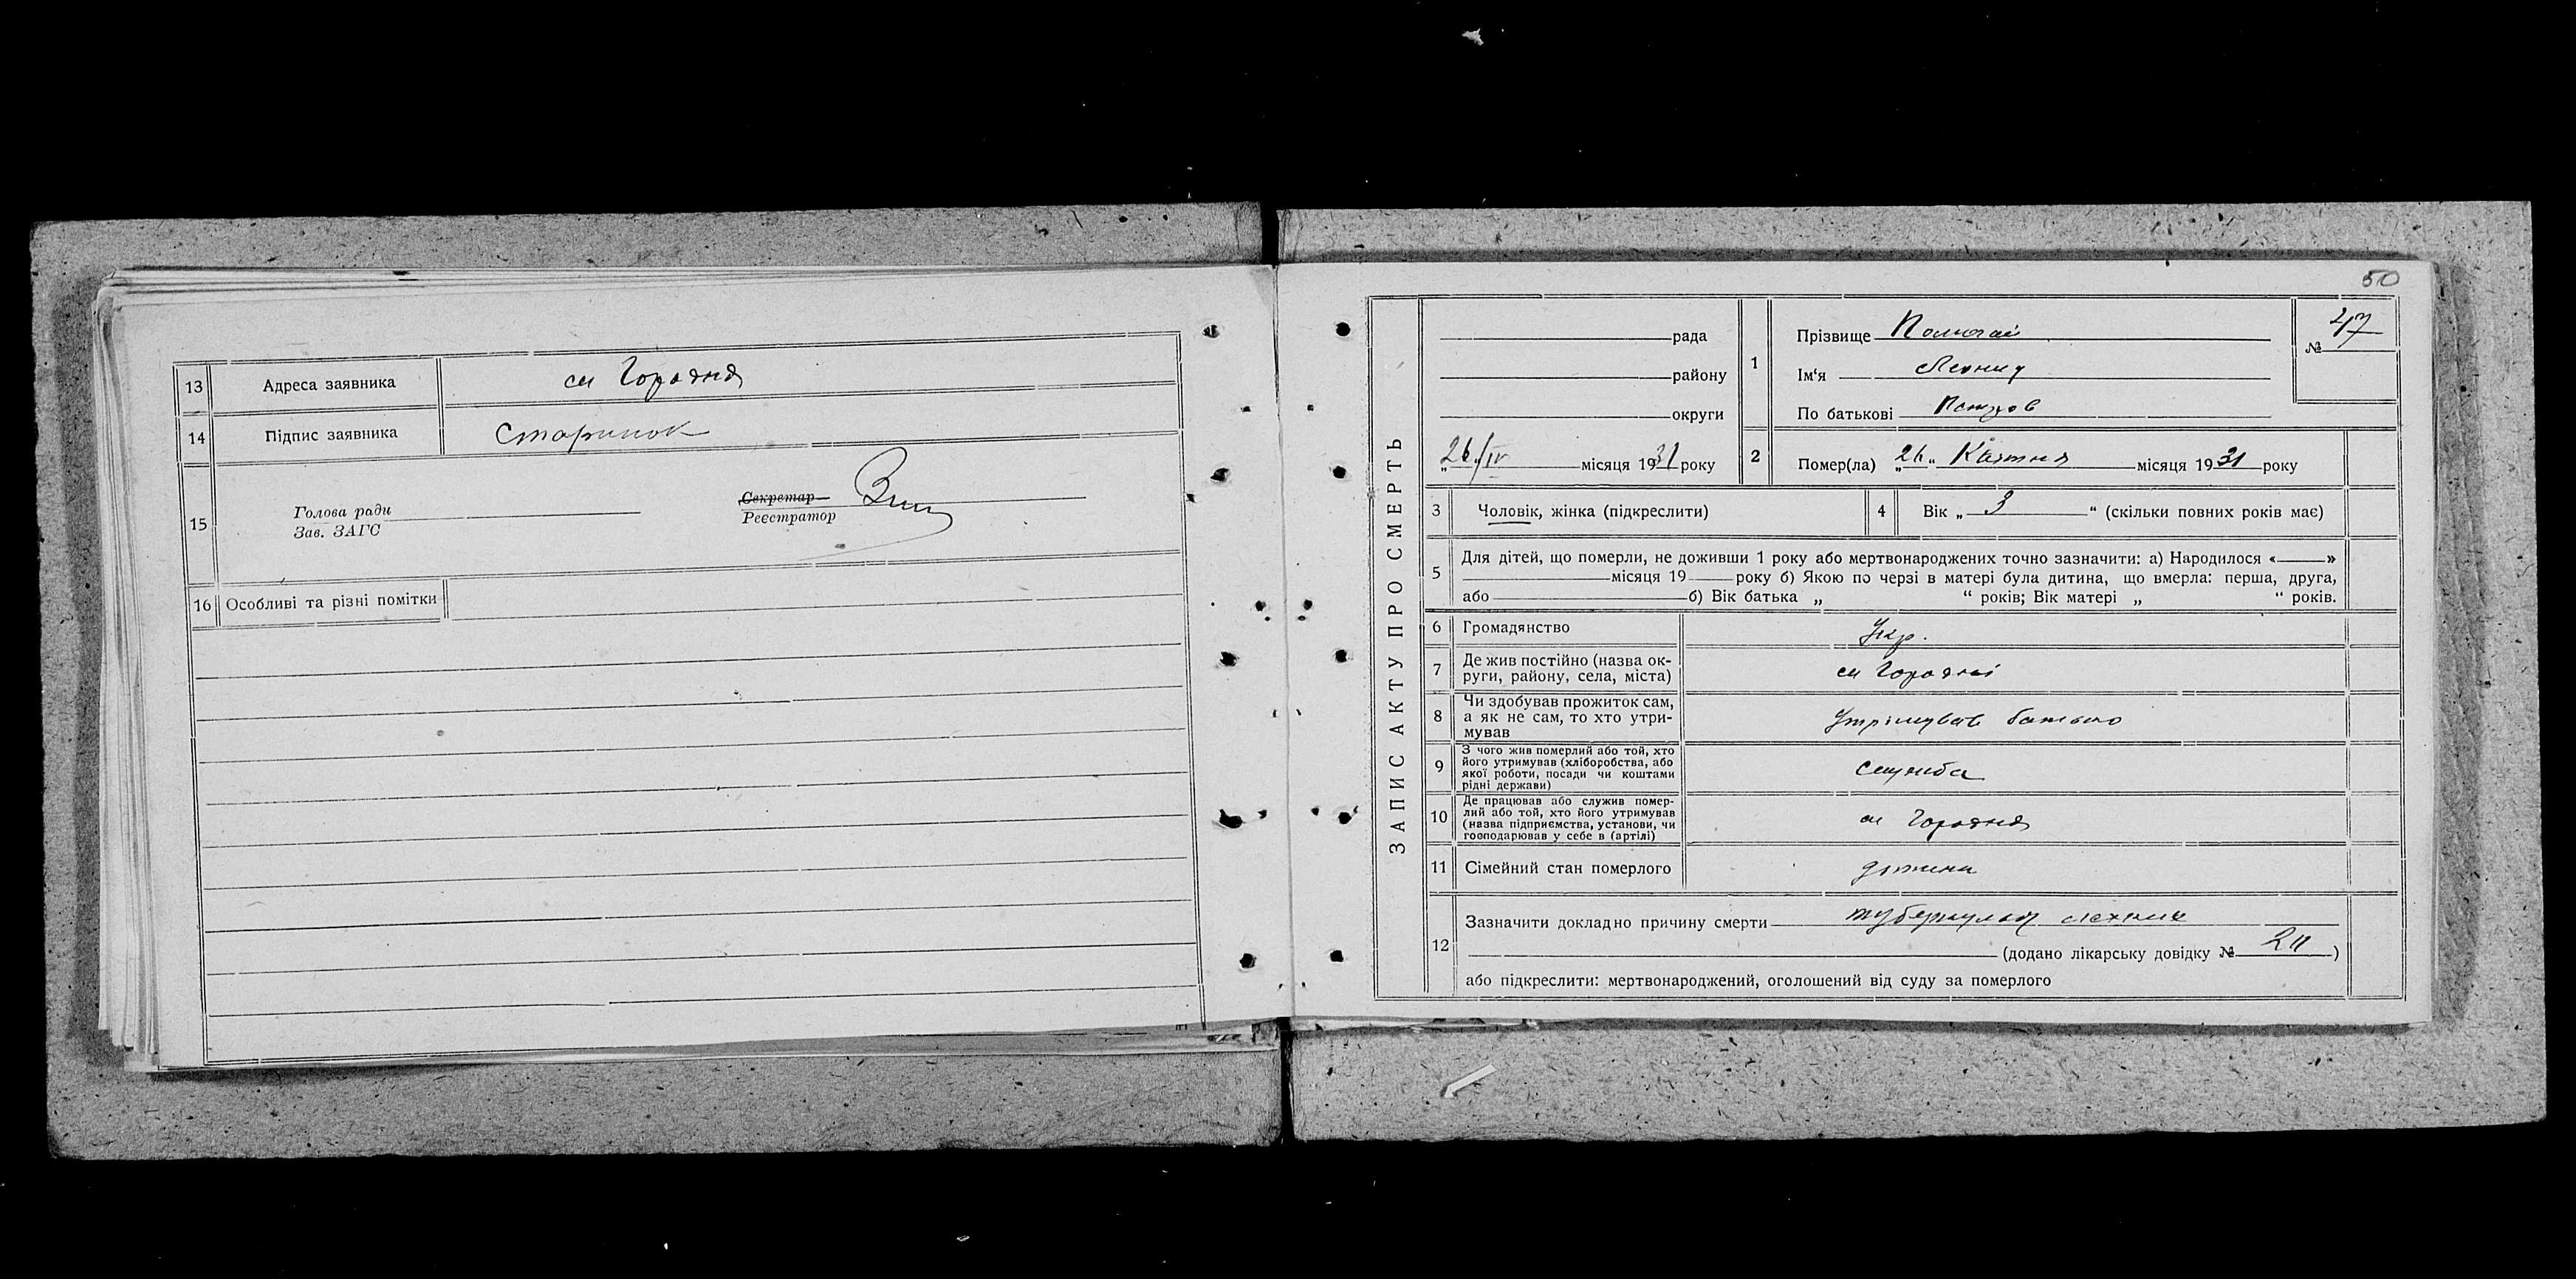 13 Адреса заявника см Городня
14 Підпис заявника Старинок
15 Голова ради
Зав. ЗАГС
Секретар
Реєстратор
16 Особливі та різні помітки
50
ЗАПИС АКТУ ПРО СМЕРТЬ
рада
району
округи
„26/IV місяця 1931 року
1 Прізвище
Ім‘я Леонид
По батькові Петров
№ 47
2 Помер(ла) „26“ Квітня місяця 1931 року
3 Чоловік, жінка (підкреслити)
4 Вік „ 3 “ (скільки повних років має)
5 Для дітей, що померли, не доживши 1 року або мертвонароджених точно зазначити: а) Народилося «——»
місяця 19 року б) Якою по черзі в матері була дитина, що вмерла: перша, друга,
або б) Вік батька „ “ років; Вік матері „ “ років.
6 Громадянство Укр.
7 Де жив постійно (назва ок-
руги, району, села, міста) см Городні
8 Чи здобував прожиток сам,
а як не сам, то хто утри-
мував Утрімував батько
9 З чого жив померлий або той, хто
його утримував (хліборобства, або
якої роботи, посади чи коштами
рідні держави) служба
10 Де працював або служив помер-
лий або той, хто його утримував
(назва підприємства, установи, чи
господарював у себе в (артілі) см Городня
11 Сімейний стан померлого дитина
12 Зазначити докладно причину смерти туберкульоз легких
(додано лікарську довідку № )
або підкреслити: мертвонароджений, оголошений від суду за померлого